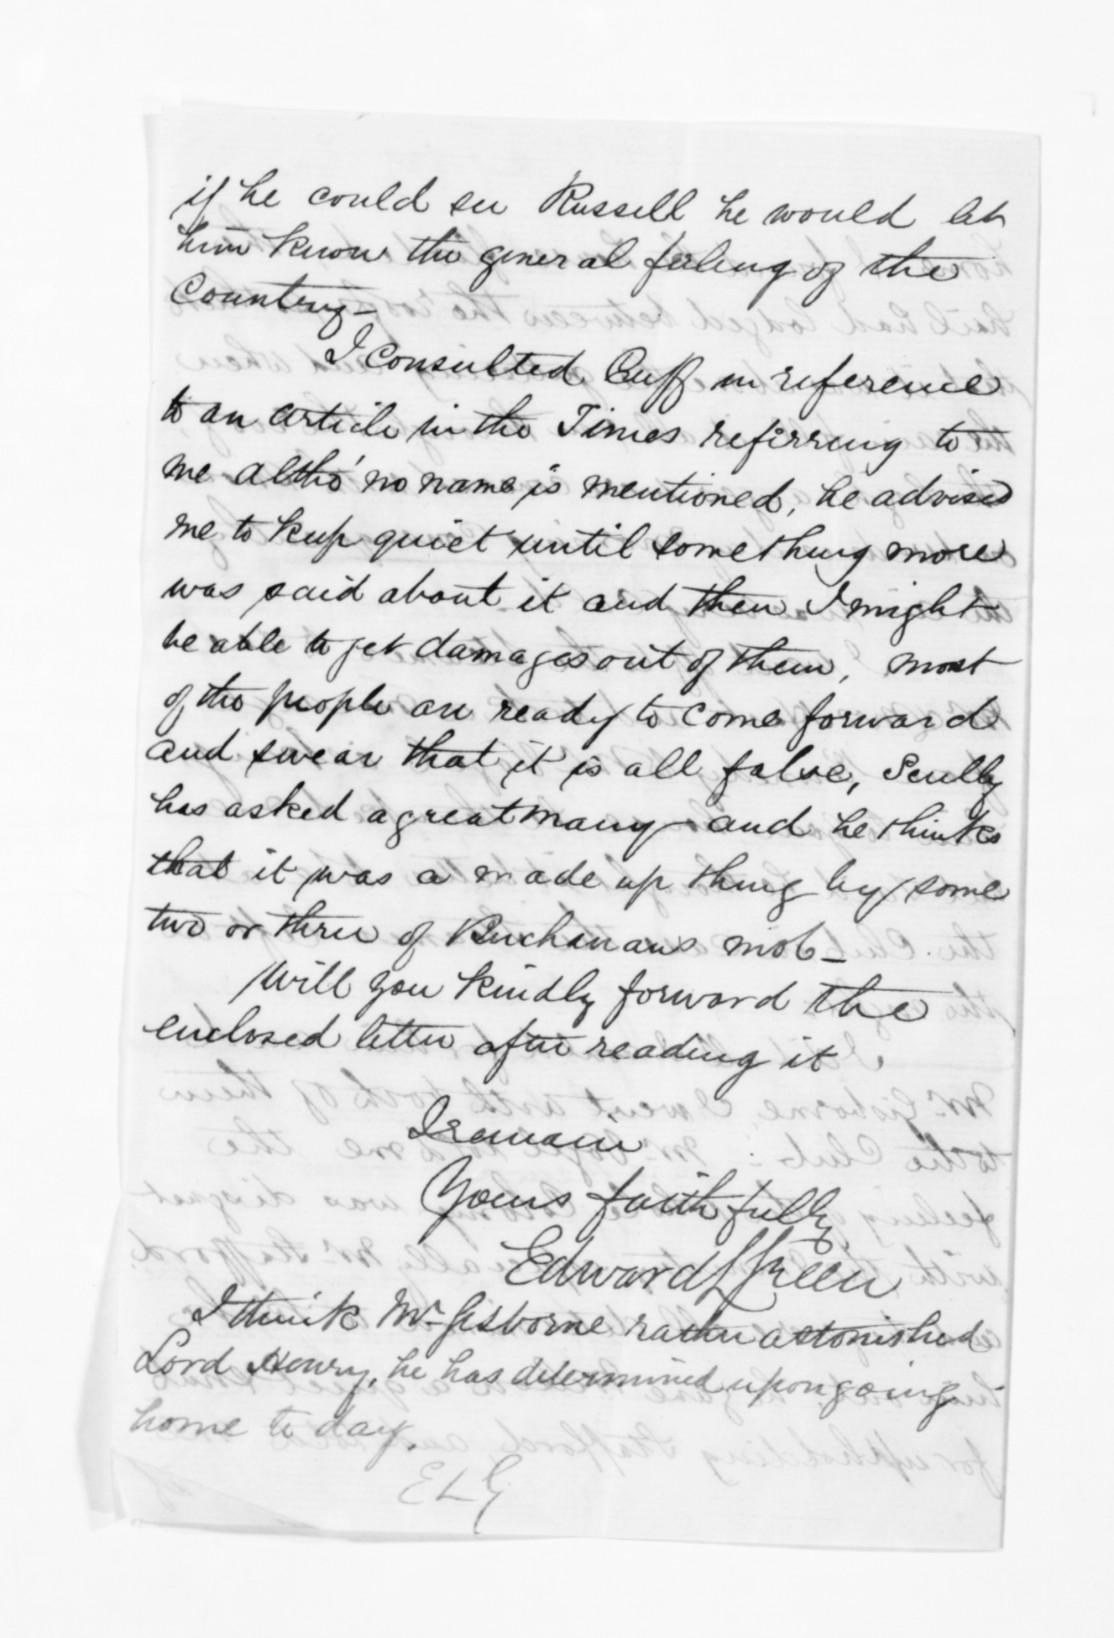 if he could see Russell he would let
him know the general feeling of the
Country –
I consulted Cuff in reference
to an article in the Times referring to
me altho' no name is mentioned, he advised
me to keep quiet until something more
was said about it and then I might
be able to get damages out of them, most
of the people are ready to come forward
and swear that it is all false, Scully
has asked a great many and he thinks
that it was a made up thing by some
two or three of Buchanans mob –
Will you kindly forward the
enclosed letter after reading it
I remain
Yours faithfully
Edward L Green
I think Mr Gisborne rather astonished
Lord Henry, he has determined upon going
home to day.
ELG